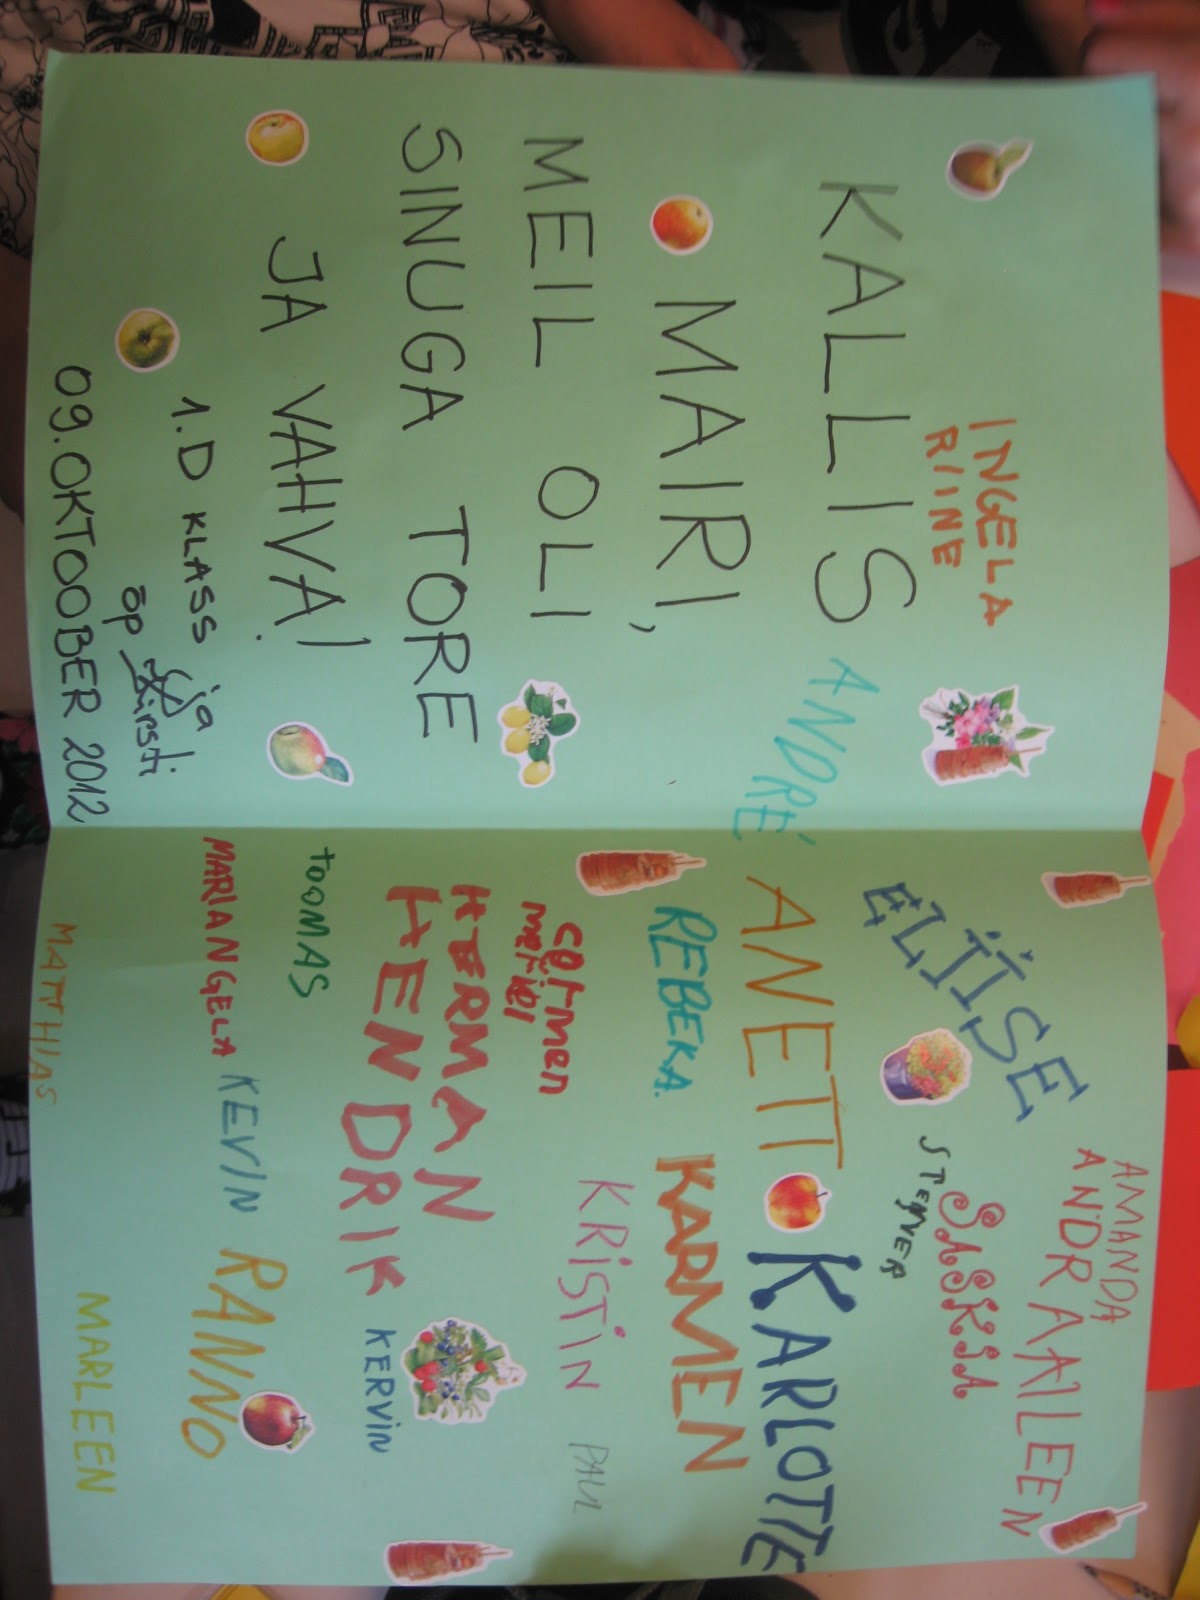 INGELA
RIINE
KALLIS
MAIRI,
MEIL OLI
SINUGA TORE
JA VAHVA!
1.D KLASS ja
õp Kirsti
09.OKTOOBER 2012
ANDRÉ
AMANDA
ANDRA AILEEN
ELIISE
SASKIA
STENVER
ANETT
KARLOTTE
REBEKA.
KARMEN
CARMEN
meriel
KRISTIN
PAUL
HERMAN
HENDRIK
KERVIN
TOOMAS
MARIANGELA
KEVIN
RAINO
MATTHIAS
MARLEEN